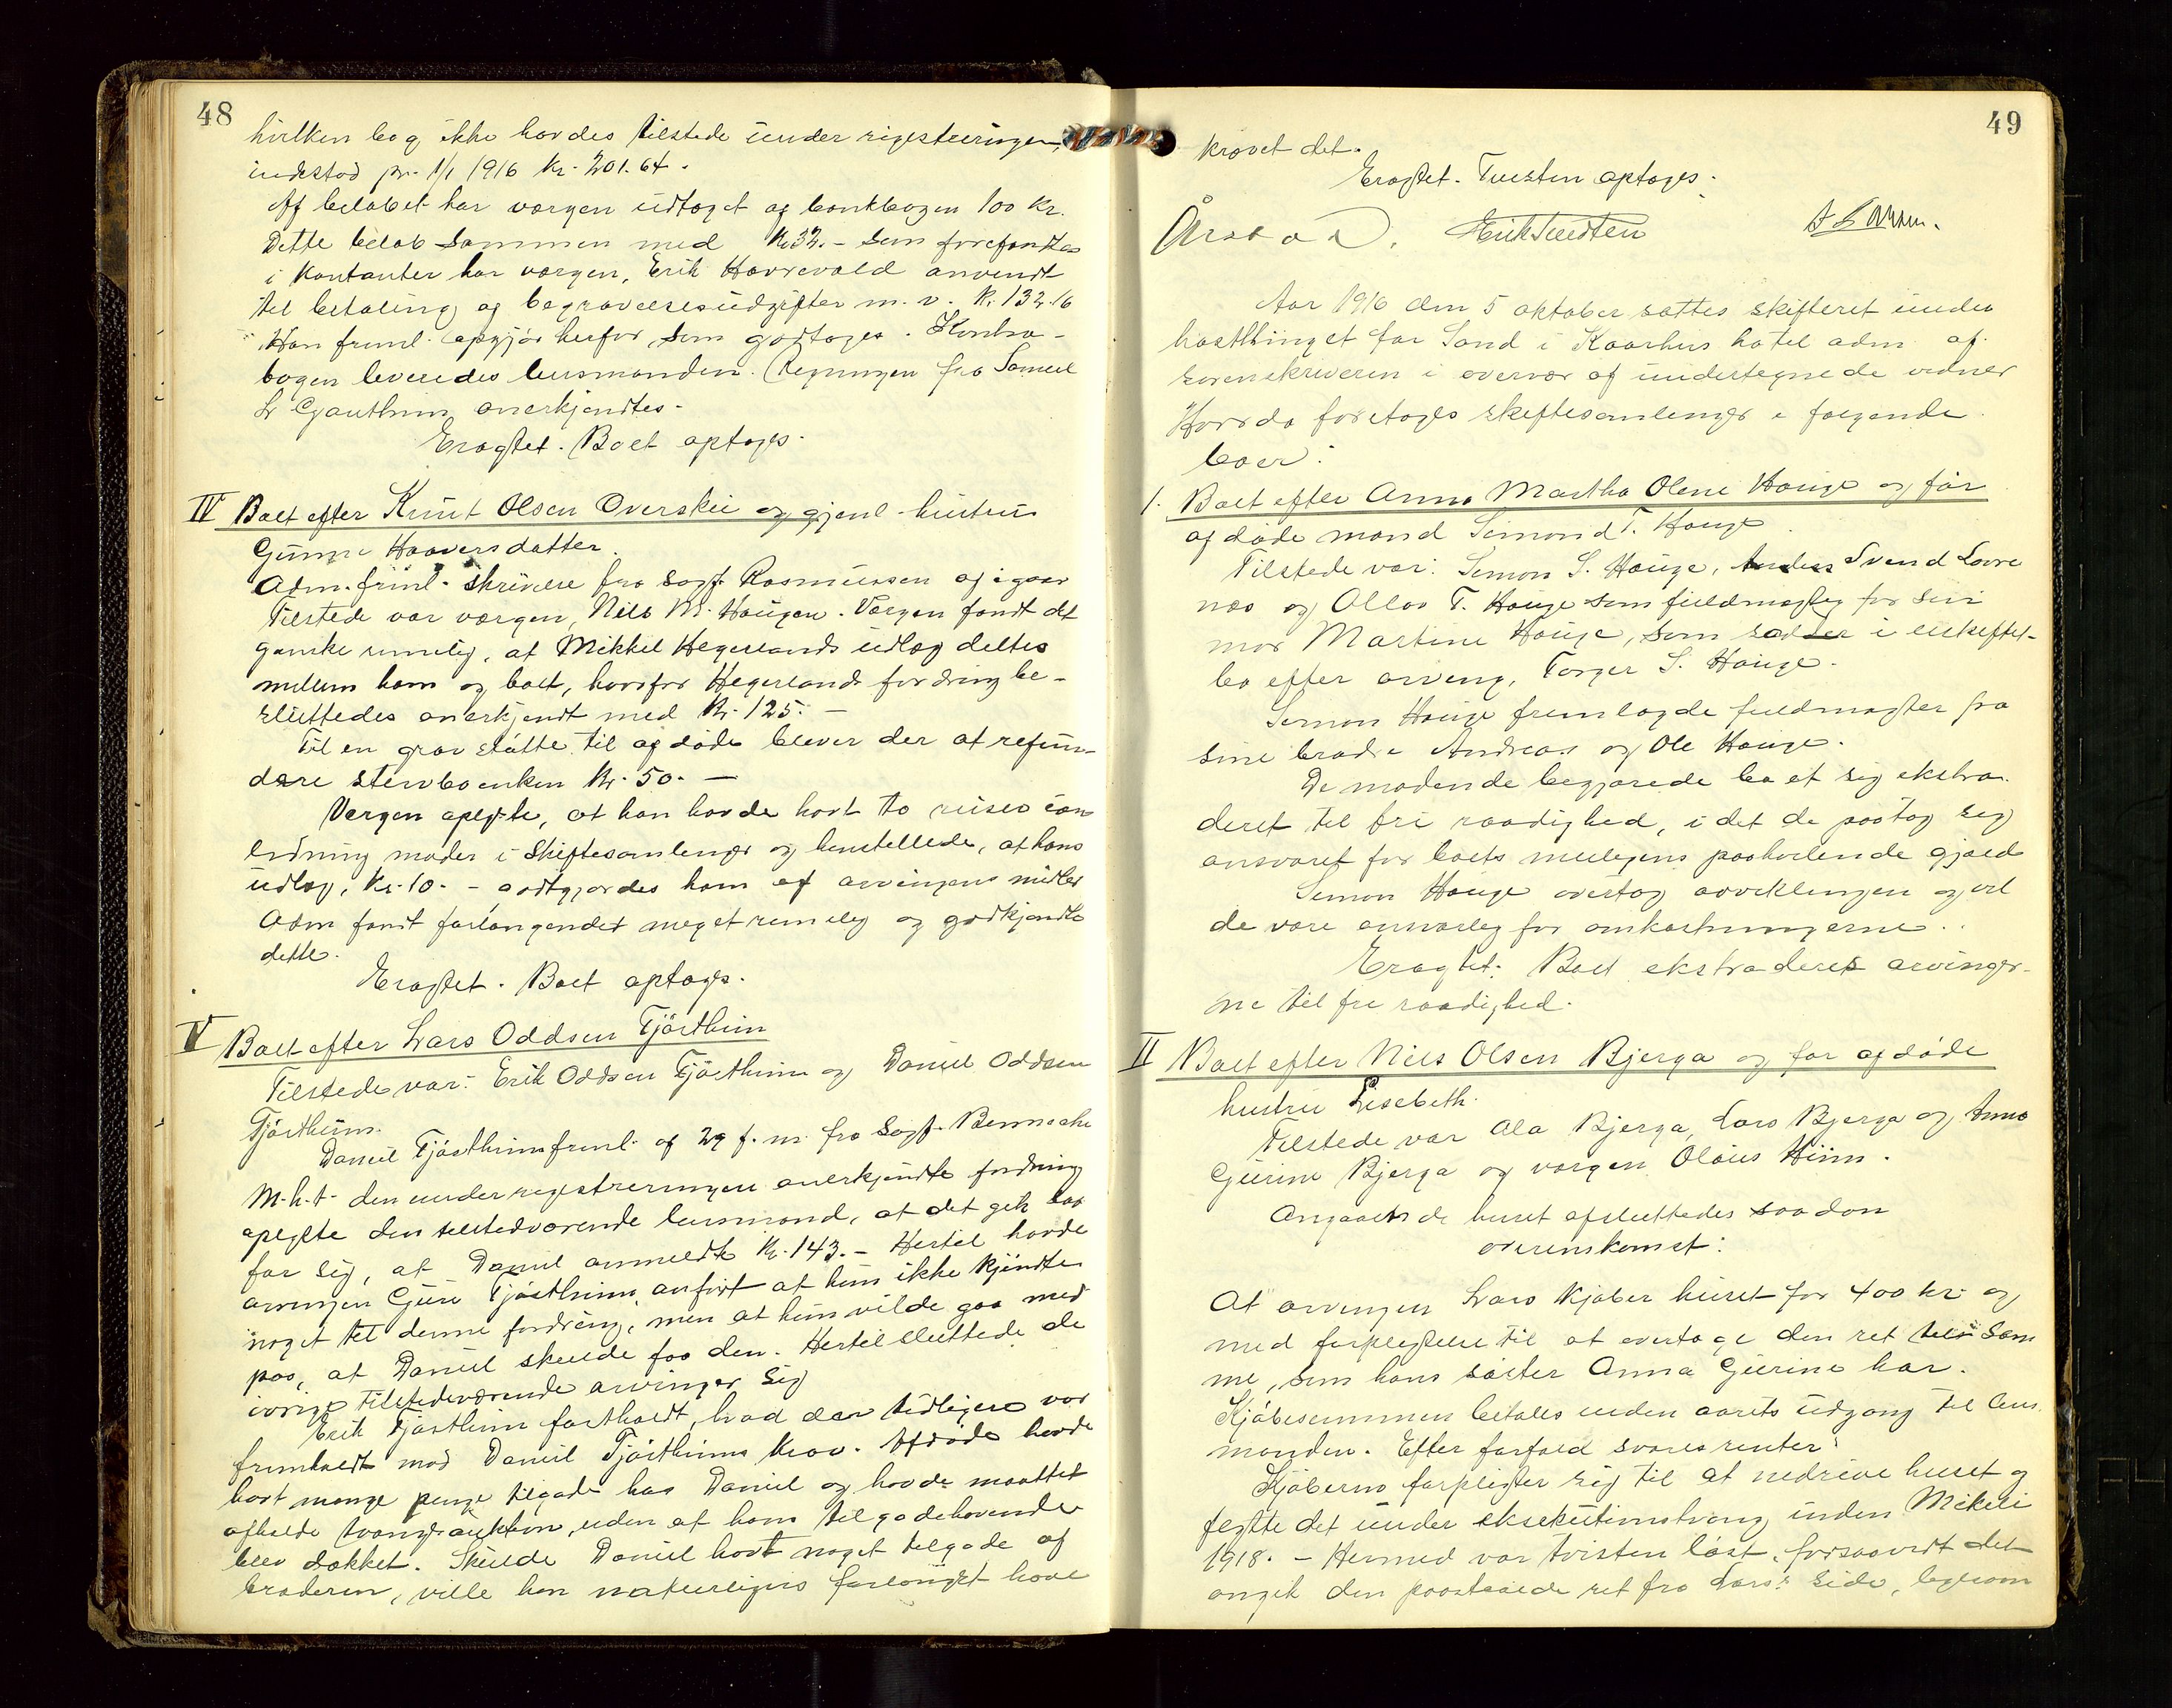 48
hvilken bog ikke havdes tilstede under registreringen,
indestod pr. 1/1 1916 kr. 201.64.
Af beløbet har værgen udtaget af bankbogen 100 kr.
Dette beløb sammen med kr 32.- som forefandtes
i kontanter har værgen, Erik Havrevold anvendt
til betaling af begravelsesudgifter m. v. kr. 132.16
Han freml. opgjør herfor, som godtoges. Kontra-
bogen leveredes lensmanden. Regningen fra Samuel
L Gjauthun anerkjendtes.
Eragtet. Boet optages.
IV Boet efter Knut Olsen Overskei og gjenl. hustru
Gunga Haaversdatter.
Adm. freml. skrivelse fra sagf. Rasmussen af igaar
Tilstede var værgen, Nils M. Haugen. Værgen fandt det
ganske rimelig, at Mikkel Hegerlands udlæg deltes
mellem ham og boet, hvorfor Hegerlands fordring be-
sluttedes anerkjendt med kr. 125.-
Til en gravstøtte til afdøde blever der at refun-
dere stervboenken kr. 50.-
Værgen oplyste, at han havde havt to reiser i an
ledning møder i skiftesamlinger og henstillede, at hans
udlæg, kr. 10.- godtgjordes ham af arvingens midler
Adm fandt forlangendet meget rimelig og godkjendte
dette.
Eragtet. Boet optages.
V Boet efter Lars Oddsen Tjøstheim
Tilstede var: Erik Oddsen Tjøstheim og Daniel Oddsen
Tjøstheim.
Daniel Tjøstheim freml. af 29 f. m. fra Sagf. Benneche
M. h. t. den under registreringen anerkjendte fordring
oplyste den tilstedværende lensmand, at det gik saa
for sig, at Daniel anmeldte kr. 143.- Hertil havde
arvingen Guri Tjøstheim anført at hun ikke kjendte
noget til denne fordring, men at hun vilde gaa med
paa, at Daniel skulde faa den. Hertil sluttede de
øvrige tilstedeværende arvinger sig
Erik Tjøstheim fastholdt, hvad der tidligere var
fremholdt mod Daniel Tjøstheims krav. Afdøde havde
havt mange penge tilgode hos Daniel og havde maattet
afholde tvangsauktion, uden at hans tilgodehavende
blev dækket. Skulde Daniel havt noget tilgode af
broderen, ville han naturligvis forlængst have
49
krævet det.
Eragtet. Tvisten optages.
Årstad. Erik Tveiten
Aar 1916 den 5 oktober sattes skifteret under
høstthinget for Sand i Kaarhus hotel adm af
sorenskriveren i overvær af undertegnede vidner
Hvorda foretoges skiftesamlinger i følgende
boer:
1. Boet efter Anna Martha Olene Hauge og før
afdøde mand Simond T. Hauge
Tilstede var: Simon S. Hauge, Svend Lovre
næs og Ollav T. Hauge som fuldmægtig for sin
mor Martine Hauge, som sidder i uskiftet
bo efter arving, Torger S. Hauge.
Simon Hauge fremlagde fuldmagter fra
sine brødre Andreas og Ole Hauge.
De mødende begjærede boet sig ekstra
deret til fri raadighed, i det de paatog sig
ansvaret for boets muligens paahvilende gjæld
Simon Hauge overtog avviklingen og vil
de være ansvarlig for omkostningerne.
Eragtet: Boet ekstraderes arvinger-
ne til fri raadighed.
II Boet efter Nils Olsen Bjerga og før afdøde
hustru Lisebeth.
Tilstede var Ola Bjerga, Lars Bjerga og Anna
Gurine Bjerga og værgen Olaus Hiim.
Angaaende huset afsluttedes saadan
overenskomst:
At arvingen Lars kjøber huset for 400 kr og
med forpligtelse til at overtage den ret til sam
me, som hans søster Anna Gurine har.
Kjøbesummen betales inden aarets udgang til lens
manden. Efter forfald svares renter.
Kjøberne forpligter sig til at nedrive huset og
flytte det under eksekutionstvang inden Mikeli
1918. - Hermed var tvisten løst, forsaavidt det
angik den paastaaede ret fra Lars's side, ligesom